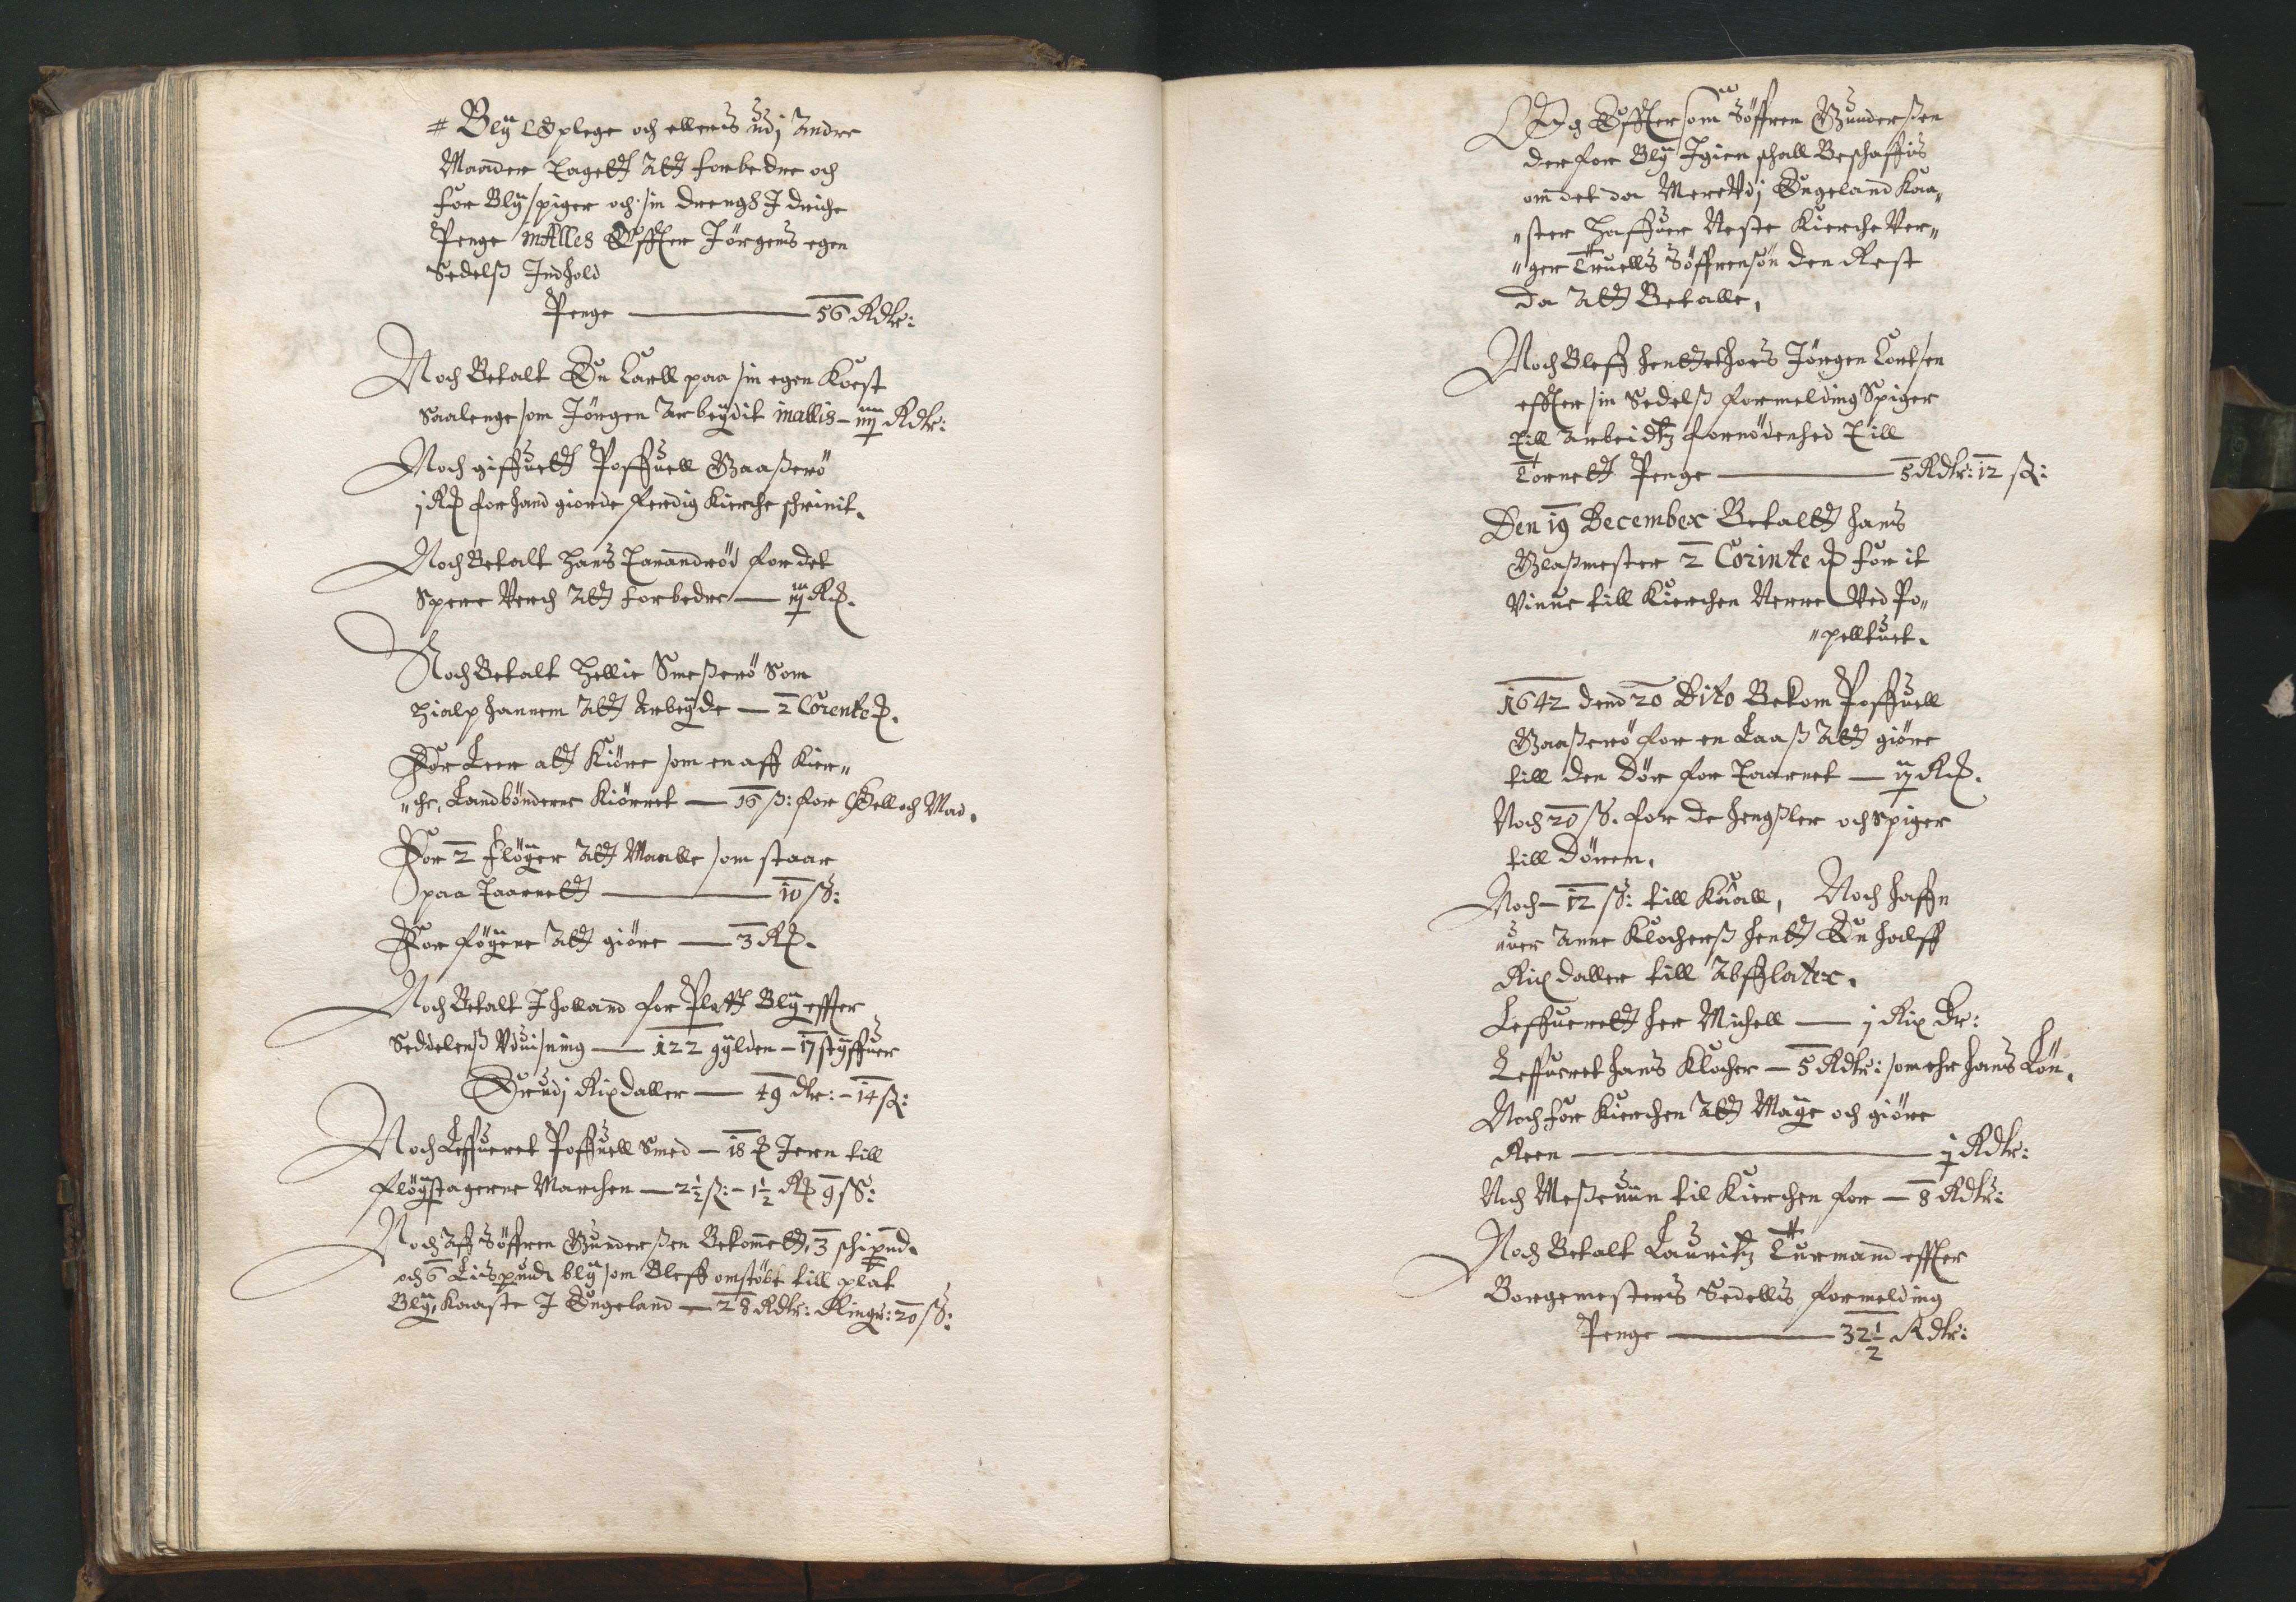 # Blÿ Oplege och elleris udj Andre
Maader Tagett Att forbedre och
for Blÿ spiger och sin drengs I driche
Penge inAlles Effter Jörgens egen
Sedelß Indhold
Penge — 56 Rdlr:
Noch Betalt En Karll paa sin egen Koest
Saalenge som Jörgen Arbeÿdit inallis – iiij Rdlr:
Noch giffuett Poffuell Gaaßerö
j R₰ for hand giorde ferdig Kierche schrinit.
Noch Betalt Hans Taranderöd for det
Sperre Verch Att forbedre — iij R₰.
Noch Betalt Hellie Smeßerö Som
Hialp hannem Att Arbeÿde — 2 Corente ₰.
For Leer att Kiöre som en aff Kier„
„che Landbönderne Kiörret — 16 ß: for Öell och Mad.
For 2 flöÿer Att Maalle som staar
paa Taarnett — 10 ß:
For föÿene Att giöre — 3 R₰.
Noch Betalt I Holland for Platt Blÿ effter
Seddelenß Vduißning — 122 gÿlden – 17 stÿffuer
Er udj Rixdaller — 49 dlr: – 14 ß:
Noch Leffueret Poffuell Smed – 18 ₰ Jern till
flöÿstagerne Marchen — 2½ ß: – 1½ R₰ 9 ß:
Noch Aff Söffren Gunderßen Bekommett, 3 schipund.
och 6 Lispund blÿ som Bleff omstöbt till plat
Blÿ, Kaaste I Engeland — 28 Rdlr: Ringer: 20 ß:
Och Effttersom Söffren Gunderßen
derfor Blÿ Igien schall Beschaffis
om det da Mere Vdj Engeland Kaa„
„ster Haffuer Neste Kierche Ver„
„ger Truells Söffrensön den Rest
da Att Betalle,
Noch Bleff henttet hoes Jörgen Lortsen
effter sin Sedelß formelding Spiger
till Arbeidtz fornödenhed Till
Tornett Penge — 5 Rdlr: 12 ß:
Den 19 December Betaltt hans
Glaßmester 2 Corinte ₰ for it
Vindue till Kierchen Nerre Ved Po„
„pelltuet.
1642 dend 20 Dito Bekom Poffuell
Gaaßerö for en Laaß Att giöre
till den Dör for Taarnet — ij R₰.
Noch 20 ß. for de hengßler och Spiger
till Dören.
Noch – 12 ß: till Kaall, Noch haff„
„uer Anne Klocherß hentt En halff
Rix daller till Abfflater.
Leffuerett her Michell — j Rix Dr:
Leffueret hans Klocher – 5 Rdlr: som ehr hans Lön.
Noch for Kierchen Att Maÿe och giöre
Reen — j Rdlr:
Nich Meßeuiin til Kierchen for – 8 Rdlr:
Noch Betalt Lauritz Turmand effter
Borgemesteris Sedellis formelding
Penge — 32½ Rdlr: